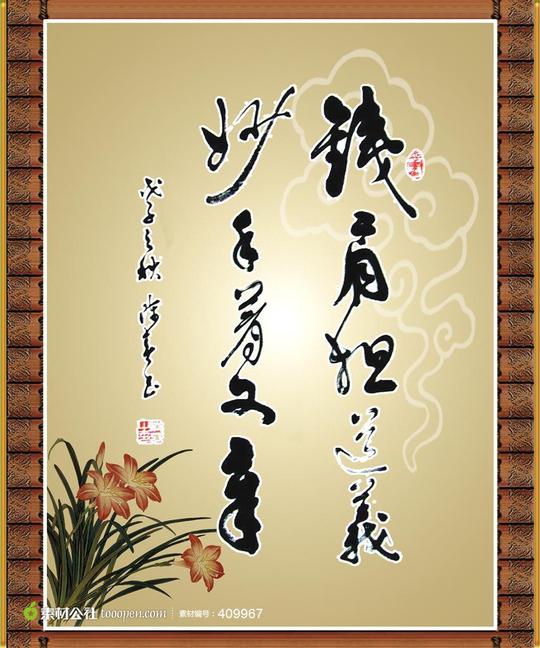 铁肩担道義
妙手著文章
戊子之秋
素材公社 tooopen.com 素材编号：409967